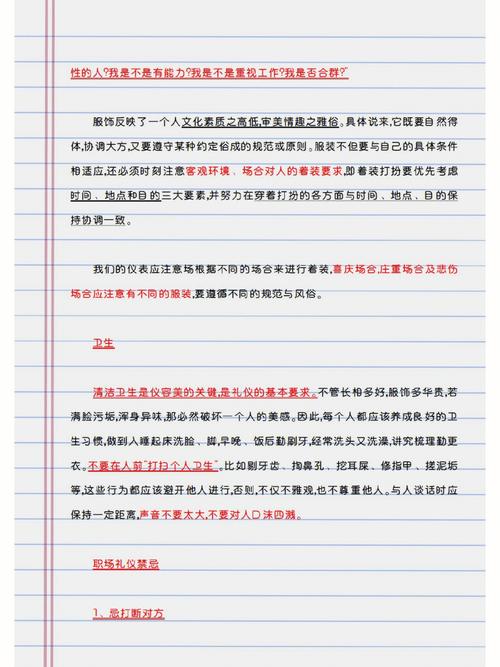 性的人?我是不是有能力?我是不是重视工作?我是否合群?"
服饰反映了一个人文化素质之高低,审美情趣之雅俗。具体说来,它既要自然得
体,协调大方,又要遵守某种约定俗成的规范或原则。服装不但要与自己的具体条件
相适应,还必须时刻注意客观环境、场合对人的着装要求,即着装打扮要优先考虑
时间、地点和目的三大要素,并努力在穿着打扮的各方面与时间、地点、目的保
持协调一致。
我们的仪表应注意场根据不同的场合来进行着装,喜庆场合,庄重场合及悲伤
场合应注意有不同的服装,要遵循不同的规范与风俗。
卫生
清洁卫生是仪容美的关键,是礼仪的基本要求。不管长相多好,服饰多华贵,若
满脸污垢,浑身异味,那必然破坏一个人的美感。因此,每个人都应该养成良好的卫
生习惯,做到人睡起床洗脸、脚,早晚、饭后勤刷牙,经常洗头又洗澡,讲究梳理勤更
衣。不要在人前"打扫个人卫生"。比如剔牙齿、掏鼻孔、挖耳屎、修指甲、搓泥垢
等,这些行为都应该避开他人进行,否则,不仅不雅观,也不尊重他人。与人谈话时应
保持一定距离,声音不要太大,不要对人口沫四溅。
职场礼仪禁忌
1、忌打断对方